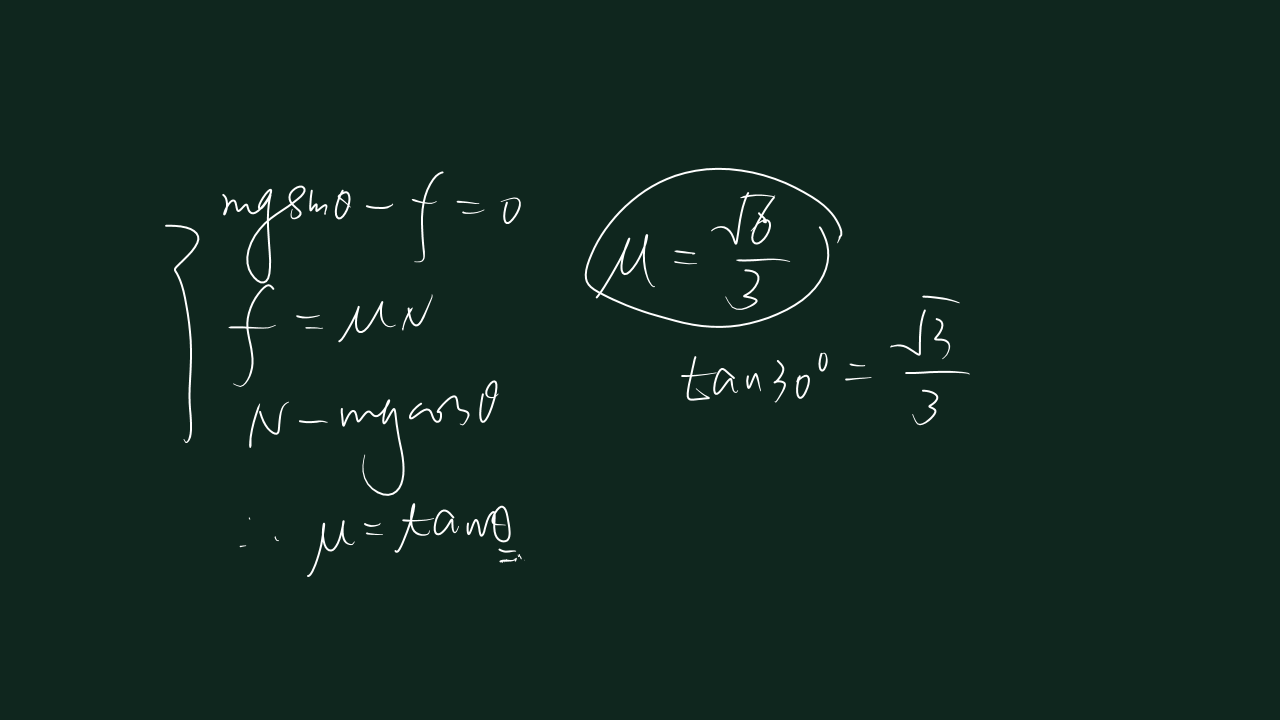 mgsinθ - f = 0
f = μN
N - mgcosθ
∴ μ = tanθ
μ = √6/3
tan30° = √3/3